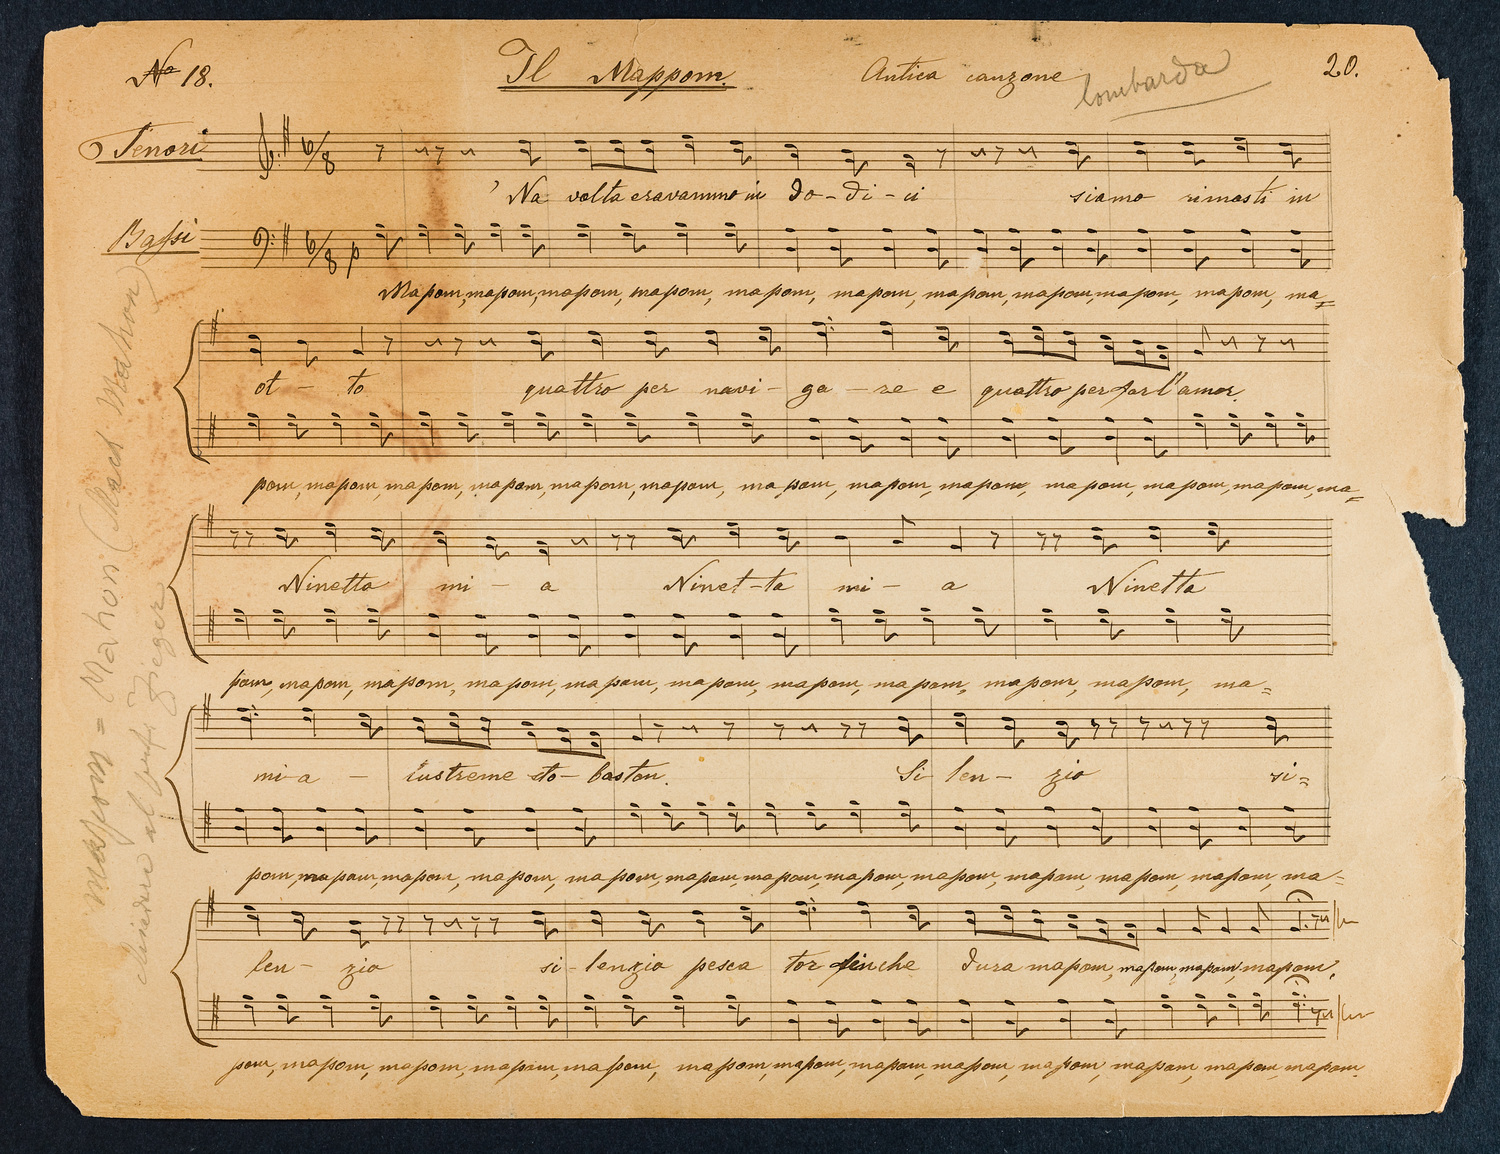 No 18. Il Mappom. Antica canzone lombarda 20.
Tenori
'Na volta eravammo in do-di-ci siamo rimasti in
Bassi
p
Mapom, mapom, mapom, mapom, mapom, mapom, mapom, mapom, mapom, mapom, ma=
ot - to quattro per navi - ga - re e quattro per far l'amor.
pom, mapom, mapom, mapom, mapom, mapom, ma pom, mapom, mapom, mapom, mapom, mapom, ma=
Ninetta mi - a Ninet-ta mi - a Ninetta
pom, mapom, mapom, mapom, mapom, mapom, mapom, mapom, mapom, mapom, ma=
mi-a - iustreme sto-baston. Si len - zio si=
pom, mapom, mapom, mapom, mapom, mapom, mapom, mapom, mapom, mapom, mapom, mapom, ma=
len - zio si-lenzio pesca tor finche dura mapom, mapom, mapom, mapom.
pom, mapom, mapom, mapom, mapom, mapom, mapom, mapom, mapom, mapom, mapom, mapom, mapom.
mapom = Mahon (Mach Mahon)
chiedere al